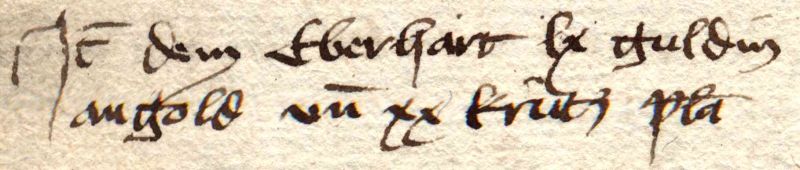 Itē dem Eberhart lx guldin
an gold vn̄ xx krutz plā